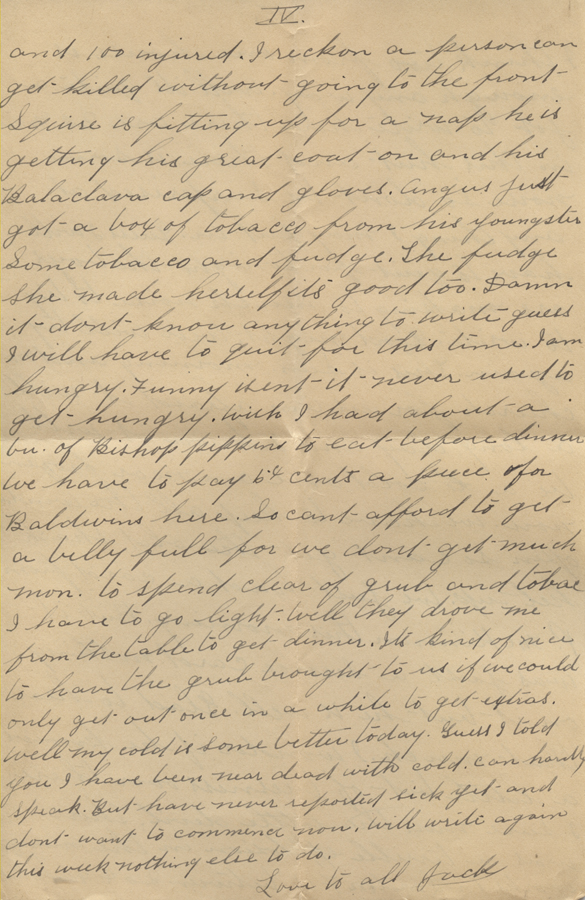 IV.
and 100 injured. I reckon a person can
get killed without going to the front
Squire is fitting up for a nap he is
getting his great coat on and his
Balaclava cap and gloves. Angus just
got a box of tobacco from his youngster
Some tobacco and fudge. The fudge
she made herself its good too. Damn
it dont know anything to write guess
I will have to quit for this time. I am
hungry. Funny isent it never used to
get hungry. Wish I had about a
bu. of Bishop pippins to eat before dinner
we have to pay 6¢ cents a piece for
Baldwins here. So cant afford to get
a belly full for we dont get much
mon. to spend clear of grub and tobac
I have to go light. Well they drove me
from the table to get dinner. Its kind of nice
to have the grub brought to us if we could
only get out once in a while to get extras.
Well my cold is some better today. Guess I told
you I have been near dead with cold. can hardly
speak. But have never reported sick yet and
dont want to commence now. Will write again
this week nothing else to do.
Love to all Jack